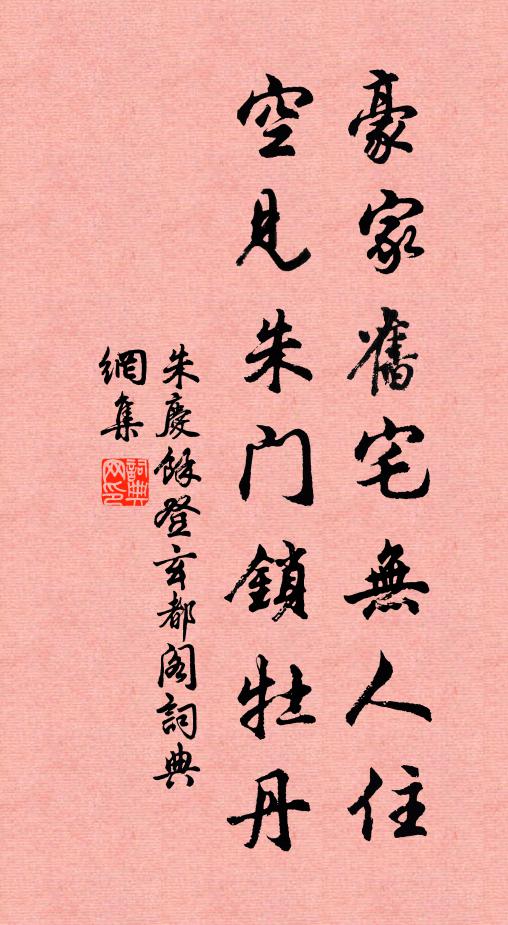 豪家舊宅無人住
空見朱门鎖牡丹
朱慶餘登玄都阁詞典
網集
詞典网印